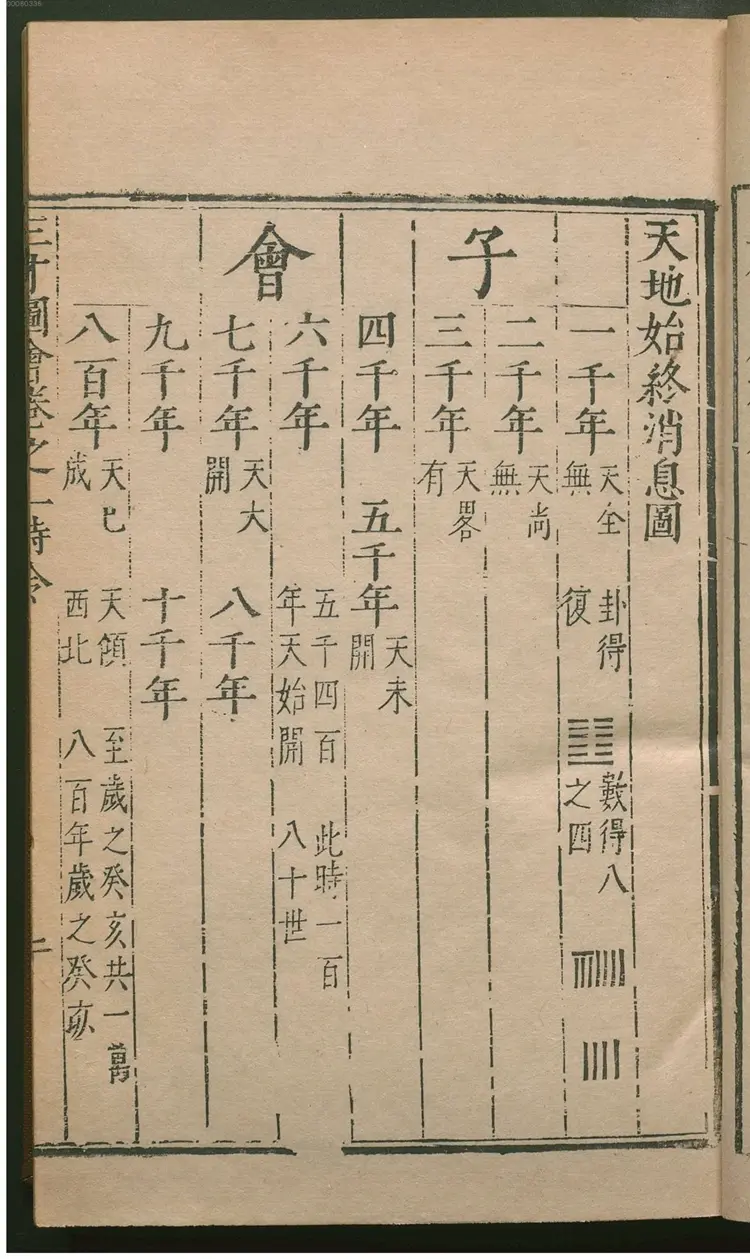 00080336
天地始終消息圖
子
會
一千年 天全無 卦得復 數得八之四
二千年 天尚無
三千年 天畧有
四千年 五千年 天未開
六千年 五千四百年天始開 此時一百八十世
七千年 天大開 八千年
九千年 十千年
八百年 天已成 天領西北 至歲之癸亥共一萬八百年歲之癸亥
三才圖會卷之一時令
二